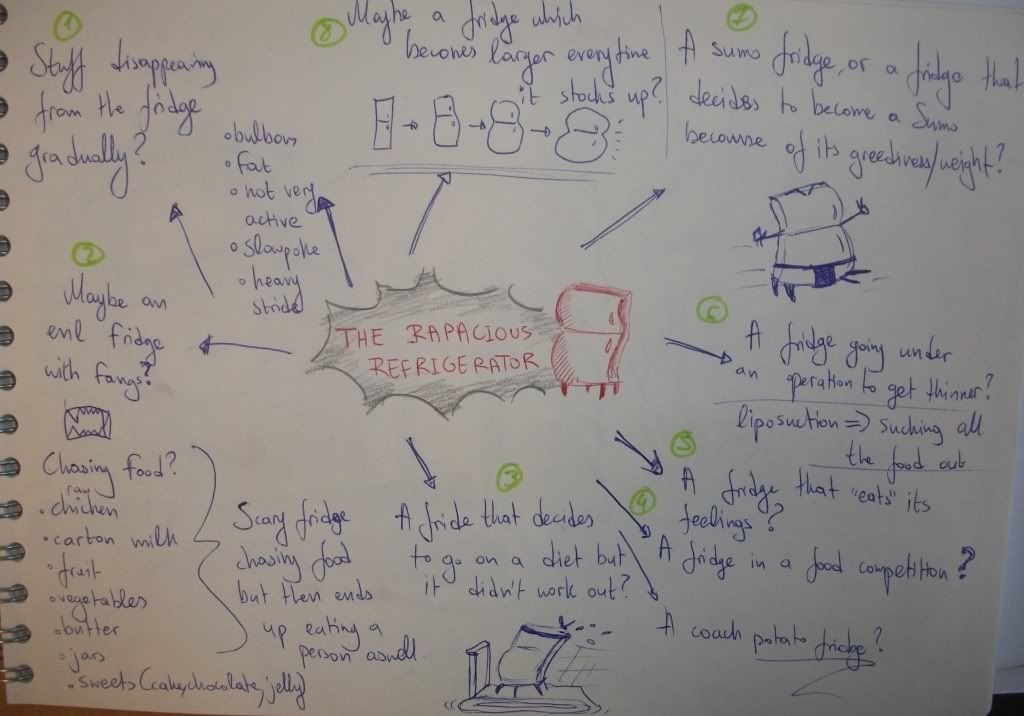 THE RAPACIOUS
REFRIGERATOR
1
Stuff disappearing
from the fridge
gradually?
• bulbous
• fat
• not very
active
• slowpoke
• heavy
stride
8
Maybe a fridge which
becomes larger everytime
it stocks up?
7
A sumo fridge, or a fridge that
decides to become a Sumo
because of its greediness/weight?
2
Maybe an
evil fridge
with fangs?
Chasing food?
raw
• chicken
• carton milk
• fruit
• vegetables
• butter
• jars
• sweets (cake, chocolate, jelly)
Scary fridge
chasing food
but then ends
up eating a
person aswell.
3
A fride that decides
to go on a diet but
it didn't work out?
6
A fridge going under
an operation to get thinner?
liposuction => sucking all
the food out
5
A fridge that "eats" its
feelings?
4
A fridge in a food competition?
A coach potato fridge?